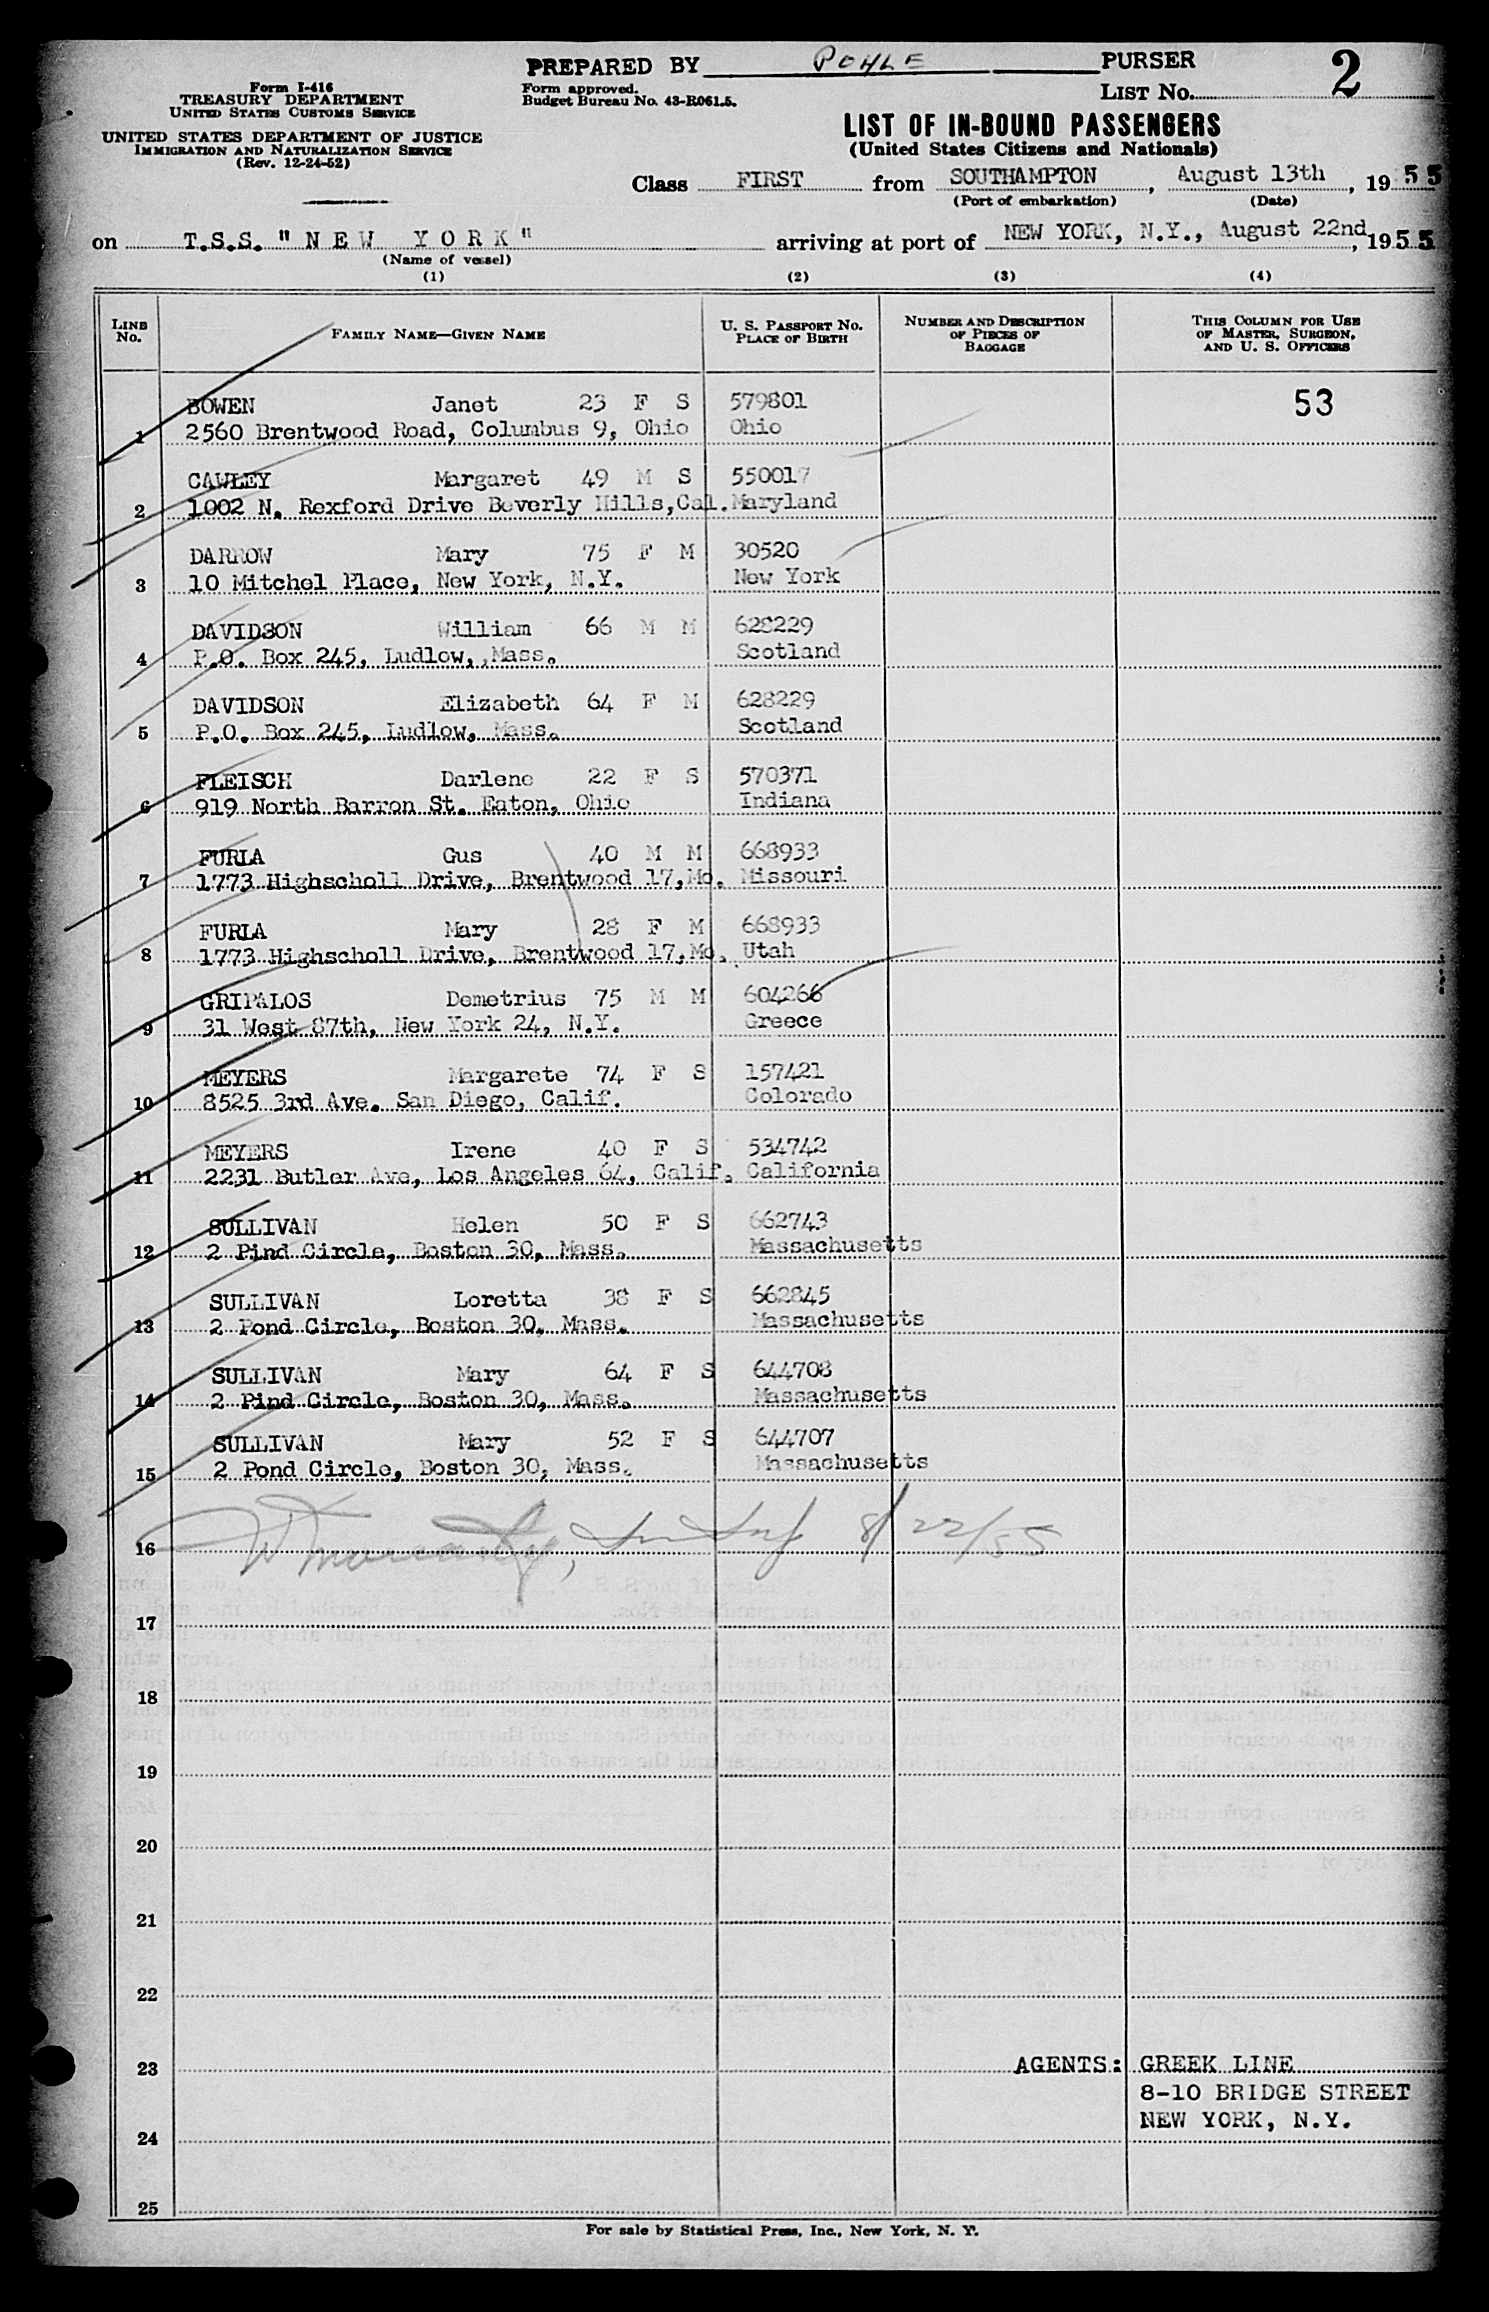 PREPARED BY POHLE PURSER
Form I-416
TREASURY DEPARTMENT
UNITED STATES CUSTOMS SERVICE
Form approved.
Budget Bureau No. 43-R061.5.
LIST No. 2
UNITED STATES DEPARTMENT OF JUSTICE
IMMIGRATION AND NATURALIZATION SERVICE
(Rev. 12-24-52)
LIST OF IN-BOUND PASSENGERS
(United States Citizens and Nationals)
Class FIRST from SOUTHAMPTON, August 13th, 1955
(Port of embarkation) (Date)
on T.S.S. "NEW YORK" arriving at port of NEW YORK, N.Y., August 22nd, 1955
(Name of vessel)
(1) (2) (3) (4)
LINE No. FAMILY NAME—GIVEN NAME U. S. PASSPORT No. PLACE OF BIRTH NUMBER AND DESCRIPTION OF PIECES OF BAGGAGE THIS COLUMN FOR USE OF MASTER, SURGEON, AND U. S. OFFICERS
BOWEN Janet 23 F S 579801 53
1 2560 Brentwood Road, Columbus 9, Ohio Ohio
CAWLEY Margaret 49 M S 550017
2 1002 N. Rexford Drive Beverly Hills,Cal. Maryland
DARROW Mary 75 F M 30520
3 10 Mitchel Place, New York, N.Y. New York
DAVIDSON William 66 M M 628229
4 P.O. Box 245, Ludlow, Mass. Scotland
DAVIDSON Elizabeth 64 F M 628229
5 P.O. Box 245, Ludlow, Mass. Scotland
FLEISCH Darlene 22 F S 570371
6 919 North Barron St. Eaton, Ohio Indiana
FURLA Gus 40 M M 668933
7 1773 Highscholl Drive, Brentwood 17,Mo. Missouri
FURLA Mary 28 F M 668933
8 1773 Highscholl Drive, Brentwood 17,Mo. Utah
GRIPALOS Demetrius 75 M M 604266
9 31 West 87th, New York 24, N.Y. Greece
MEYERS Margarete 74 F S 157421
10 8525 3rd Ave. San Diego, Calif. Colorado
MEYERS Irene 40 F S 534742
11 2231 Butler Ave, Los Angeles 64, Calif. California
SULLIVAN Helen 50 F S 662743
12 2 Pind Circle, Boston 30, Mass. Massachusetts
SULLIVAN Loretta 38 F S 662845
13 2 Pond Circle, Boston 30, Mass. Massachusetts
SULLIVAN Mary 64 F S 644708
14 2 Pind Circle, Boston 30, Mass. Massachusetts
SULLIVAN Mary 52 F S 644707
15 2 Pond Circle, Boston 30, Mass. Massachusetts
16 8/22/55
17
18
19
20
21
22
23 AGENTS: GREEK LINE
8-10 BRIDGE STREET
NEW YORK, N.Y.
24
25
For sale by Statistical Press, Inc., New York, N. Y.